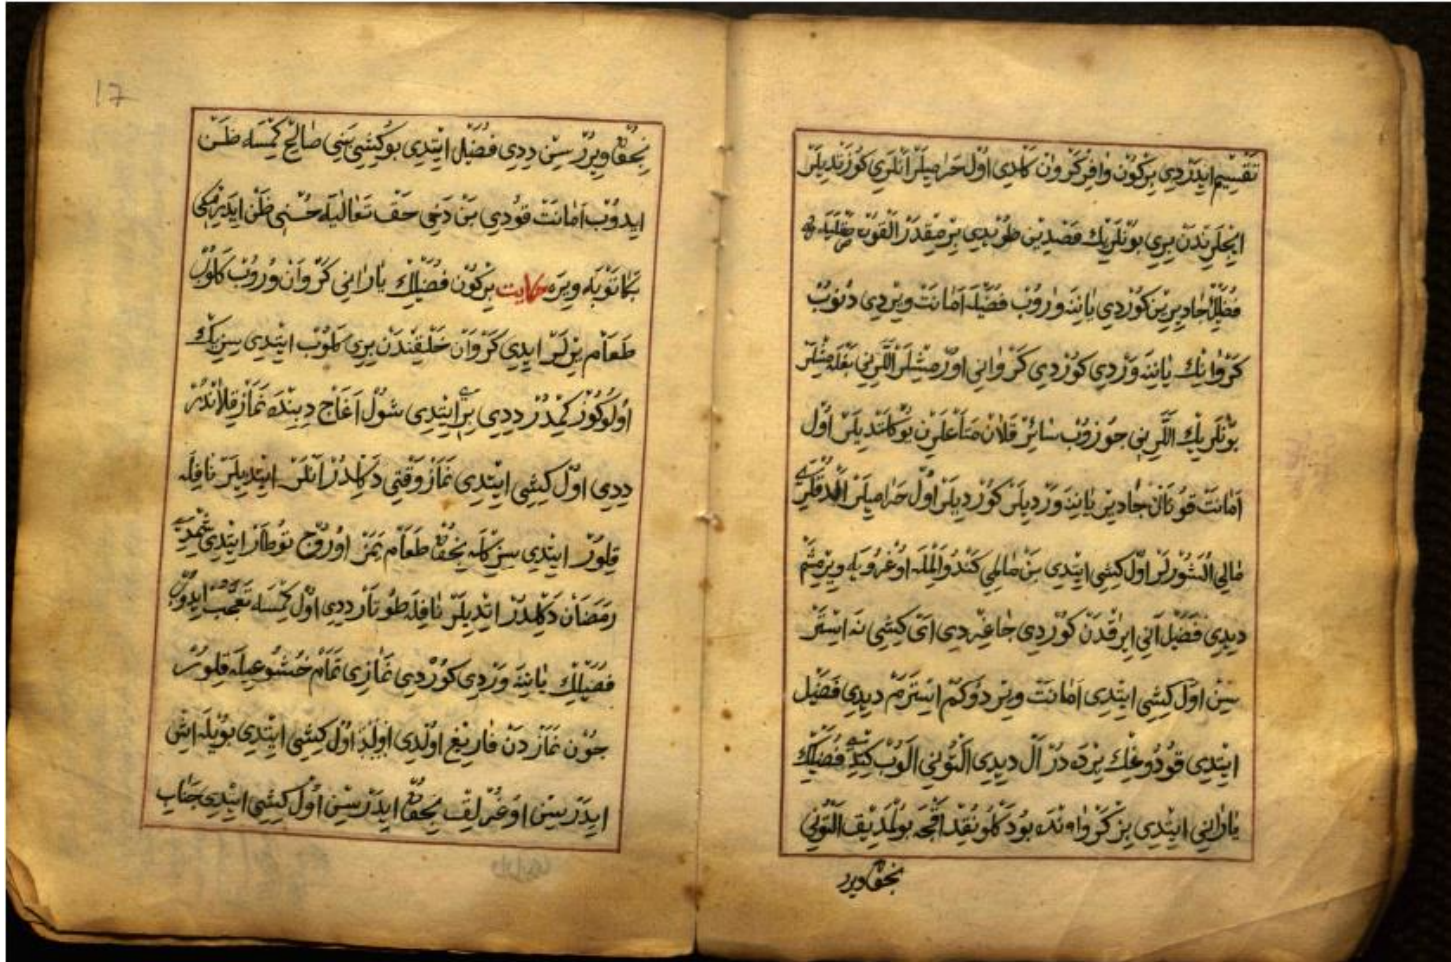 تقسیم ایدردی برکون وافر کروان کلدی اول حرامیلر انلری کوزتدیلر
ایچلرندن بری بونلریك قصدین طویدی بر مقدر التون
فضیل جادرین کوردی یاننه وروب فضیله امانت ویردی دنوب
کروانیك یاننه وردی کوردی کروانی اورمشلر اللرنی بغلمشلر
بونلریك اللرینی جوزوب سائر قلان متاعلرن یوکلتدیلر اول
امانت قونان جادیر یاننه وردیلر کوردیلر اول حرامیلر الدقلری
مالی الشورلر اول کیشی ایتدی بن مالمی کندو المله اوغرویه ویرمشم
دیدی فضیل انی ایراقدن کوردی جاغردی ای کیشی نه ایستر
سین اول کیشی ایتدی امانت ویردوکم ایسترم دیدی فضیل
ایتدی قودوغك یرده در آل دیدی التونی الوب کتدی فضیلك
یارانی ایتدی بز کروانده بودکلو نقد اقجه بولمدیق التونی
نیجون ویرر
17
نیجون ویررسن ددی فضیل ایتدی بوکیشی بنی صالح کمسه ظن
ایدوب امانت قودی بن دخی حق تعالیه حسنی ظن ایدرمکی
بکا توبه ویره حکایت برکون فضیلك یارانی کروان وروب کلوب
طعام یرلر ایدی کروان خلقندن بری کلوب ایتدی سیزیك
اولوکوز کیمدر ددی بری ایتدی شول اغاج دبنده نماز قلاندر
ددی اول کیشی ایتدی نماز وقتی دکلدر انلر ایتدیلر نافله
قلور ایتدی سیزکله نیجون طعام یمز اوروج توطار ایتدی شمدی
رمضان دکلدر ایتدیلر نافله طوتار ددی اول کمسه تعجب ایدوب
فضیلك یاننه وردی کوردی نمازی تمام خشوعیله قلور
جون نمازدن فاریغ اولدی اول کیشی ایتدی بویله ایش
ایدرسن اوغرلیق نیجون ایدرسن اول کیشی ایتدی جناب